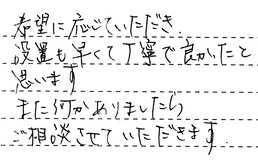 希望に応じていただき
設置も早くて丁寧で良かったと
思います
また何かありましたら
ご相談させていただきます